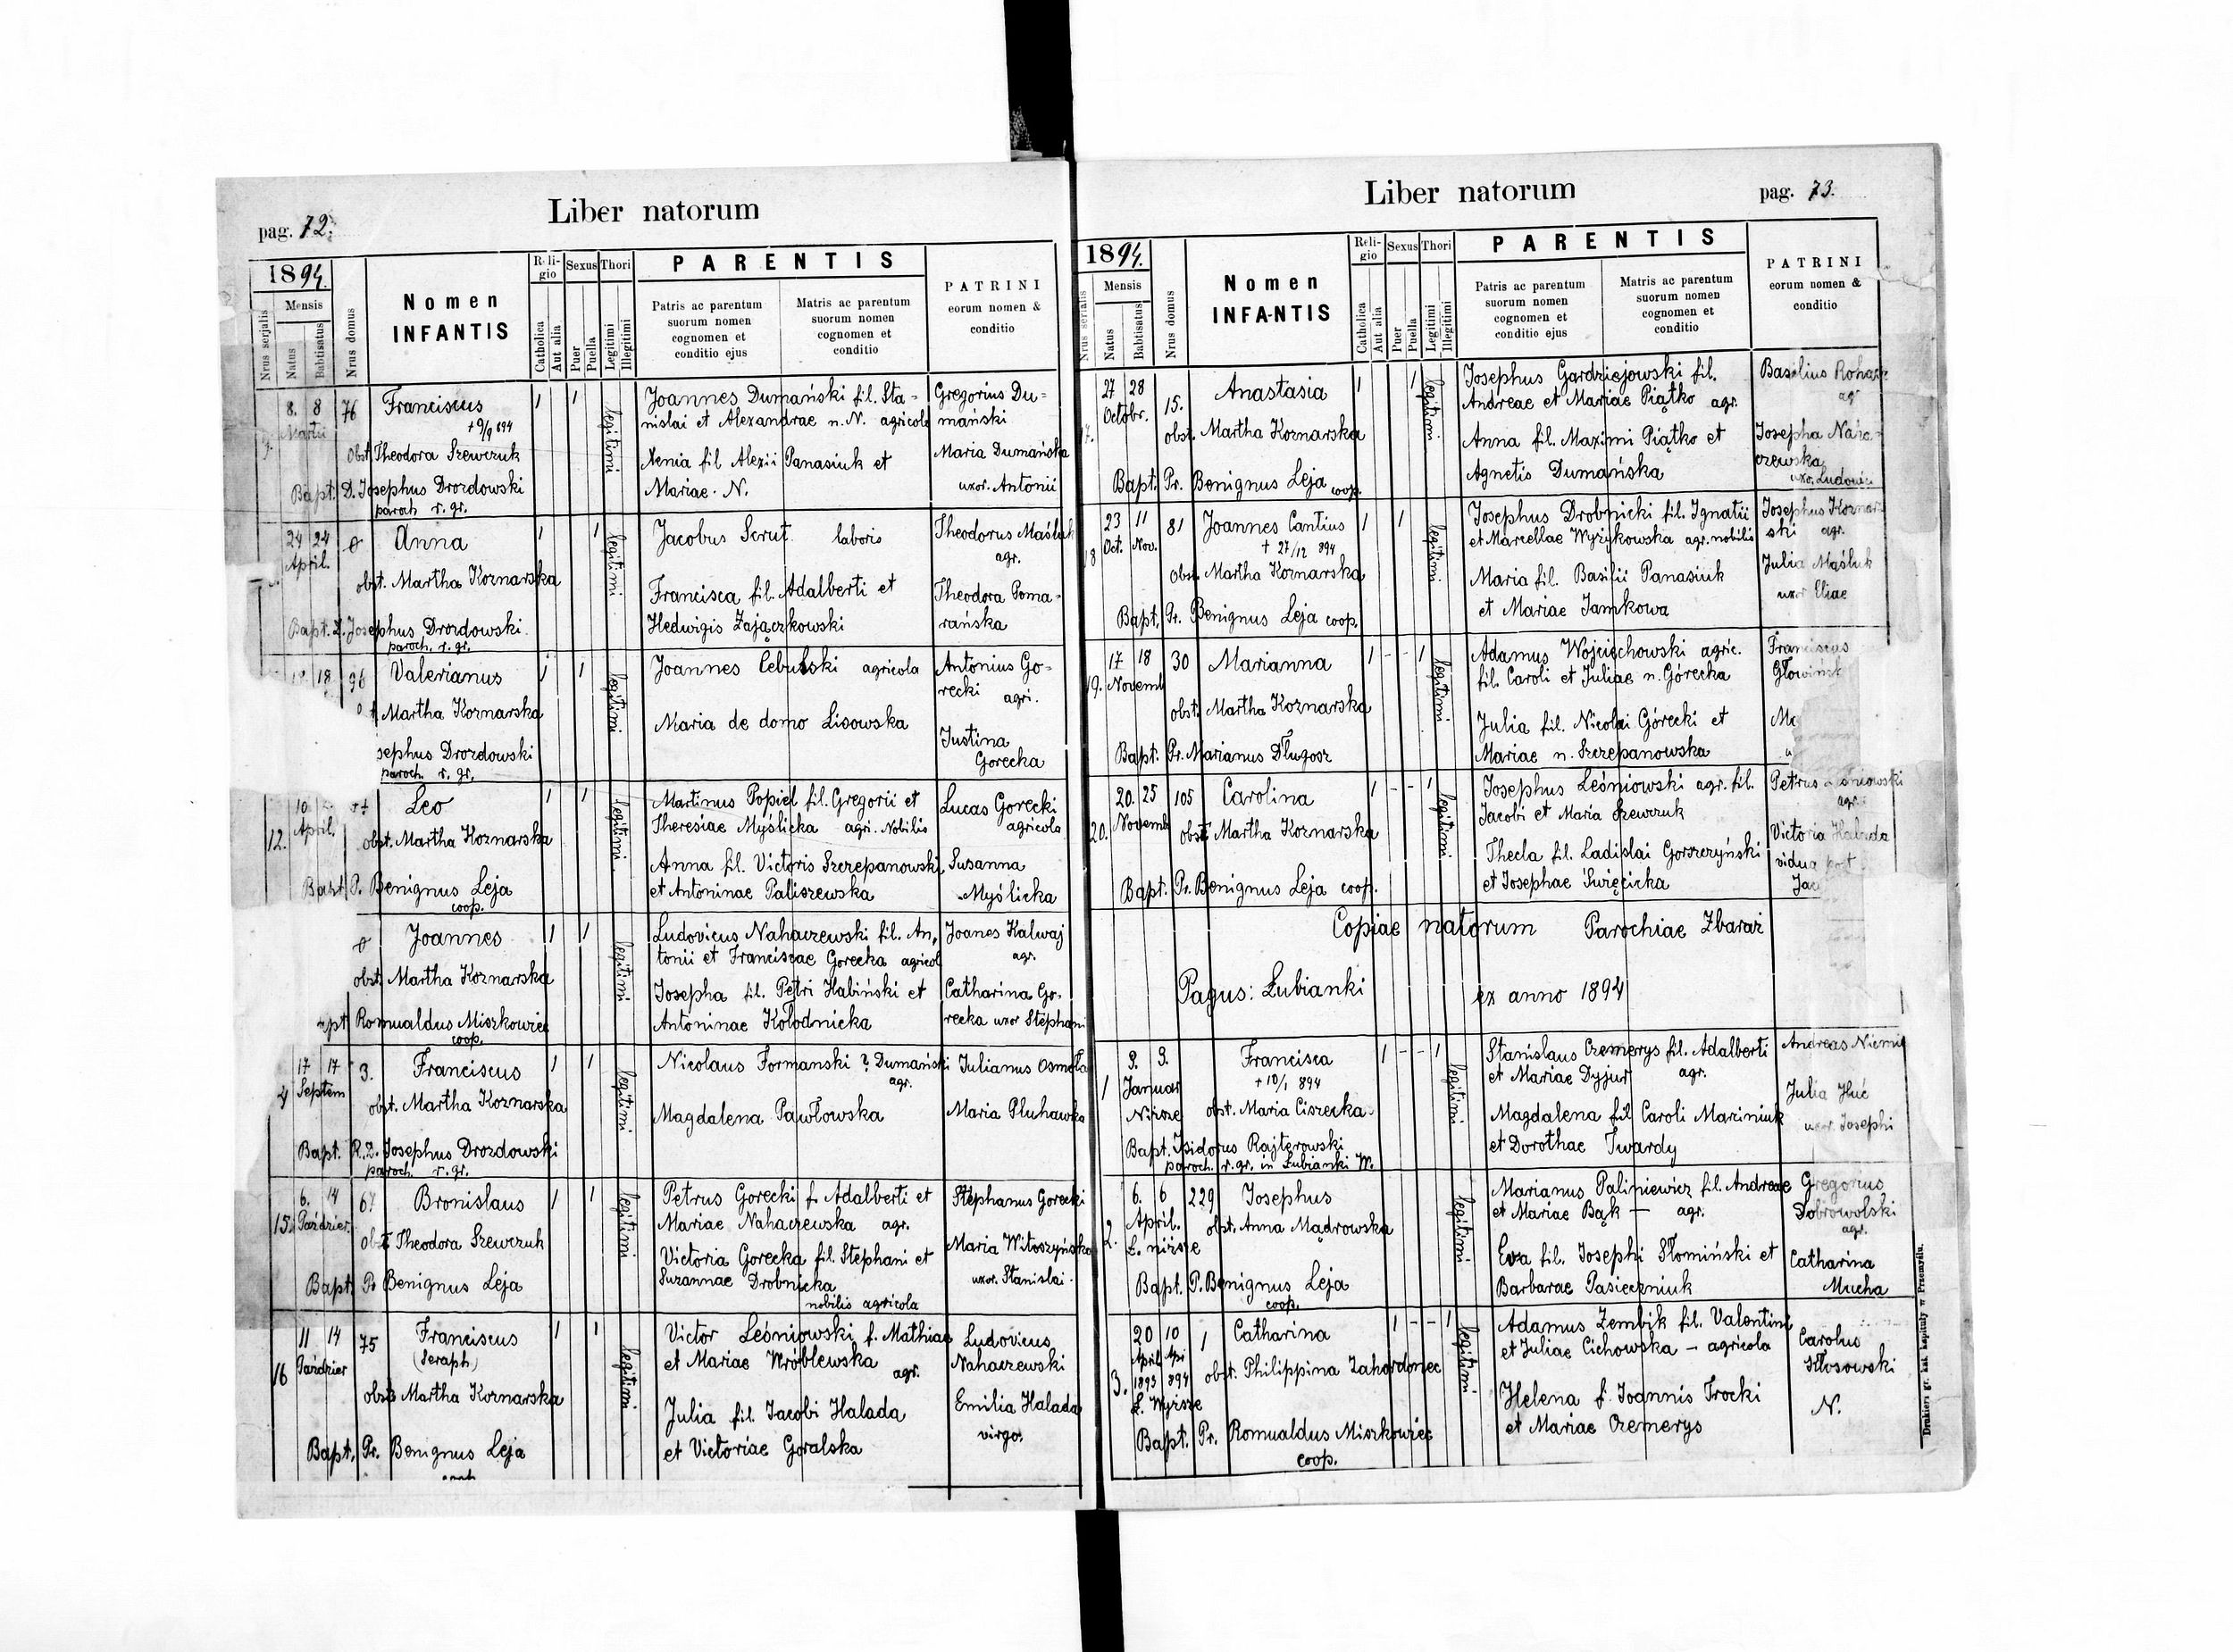 pag. 72.
Liber natorum
1894.
Nrus serjalis
Mensis
Natus
Babtisatus
Nrus domus
Nomen
INFANTIS
Reli-
gio
Catholica
Aut alia
Sexus
Puer
Puella
Thori
Legitimi
Illegitimi
PARENTIS
Patris ac parentum
suorum nomen
cognomen et
conditio ejus
Matris ac parentum
suorum nomen
cognomen et
conditio
PATRINI
eorum nomen &
conditio
8. 8 76 Franciscus 1 1 legitimi
Martii
+ 9/9 894
obst Theodora Szewczuk
Bapt. D. Josephus Drozdowski
paroch r. gr.
Joannes Dumański fil. Sta-
nislai et Alexandrae n. N. agricola
Xenia fil Alexii Panasiuk et
Mariae. N.
Gregorius Du-
mański
Maria Dumańska
uxor. Antonii
24 24 Anna 1 1 legitimi
April.
obst. Martha Koznarska
Bapt. D. Josephus Drozdowski
paroch. r. gr.
Jacobus Scrut laboris
Francisca fil. Adalberti et
Hedwigis Zajączkowski
Theodorus Maśluk
agr.
Theodora Poma-
rańska
18 96 Valerianus 1 1 legitimi
Martha Koznarska
sephus Drozdowski
paroch. r. gr.
Joannes Cebulski agricola
Maria de domo Lisowska
Antonius Go-
recki agri.
Justina
Gorecka
12. 10 Leo 1 1 legitimi
April.
obst. Martha Koznarska
Bapt. P. Benignus Leja
coop.
Martinus Popiel fil. Gregorii et
Theresiae Myślicka agri. Nobilis
Anna fil. Victoris Szczepanowski
et Antoninae Paliszewska
Lucas Gorecki
agricola
Susanna
Myślicka
Joannes 1 1 legitimi
obst. Martha Koznarska
apt Romualdus Miszkowiec
coop.
Ludovicus Nahaczewski fil. An,
tonii et Franciscae Gorecka agricol
Josepha fil. Petri Habiński et
Antoninae Kołodnicka
Joanes Kalwaj
agr.
Catharina Go-
recka uxor Stephani
17 17 3. Franciscus 1 1 legitimi
Septem
obst. Martha Koznarska
Bapt. Josephus Drozdowski
paroch. r. gr.
Nicolaus Formanski ? Dumański
agr.
Magdalena Pawłowska
Julianus Osmoła
Maria Pluhawka
15. 6. 14 67 Bronislaus 1 1 legitimi
Paździer.
obst Theodora Szewczuk
Bapt. Pr Benignus Leja
Petrus Gorecki f. Adalberti et
Mariae Nahaczewska agr.
Victoria Gorecka fil. Stephani et
Suzannae Drobnicka
nobilis agricola
Stephanus Gorecki
Maria Witoszyńska
uxor. Stanislai.
16 11 14 75 Franciscus 1 1 legitimi
Paździer (Seraph)
obst Martha Koznarska
Bapt. Pr. Benignus Leja
Victor Leśniowski f. Mathiae
et Mariae Wróblewska
agr.
Julia fil. Jacobi Halada
et Victoriae Goralska
Ludovicus
Nahaczewski
Emilia Halada
virgo.
Liber natorum
pag. 73.
1894.
Nrus serialis
Mensis
Natus
Babtisatus
Nrus domus
Nomen
INFANTIS
Reli-
gio
Catholica
Aut alia
Sexus
Puer
Puella
Thori
Legitimi
Illegitimi
PARENTIS
Patris ac parentum
suorum nomen
cognomen et
conditio ejus
Matris ac parentum
suorum nomen
cognomen et
conditio
PATRINI
eorum nomen &
conditio
27 28 15. Anastasia 1 1 legitimi
Octobr.
obst. Martha Koznarska
Bapt. Pr. Benignus Leja coop.
Josephus Gardziejowski fil.
Andreae et Mariae Piątko agr.
Anna fil. Maximi Piątko et
Agnetis Dumańska
Basilius
Josepha Naha-
czewska
uxo. Ludovic
23 11 81 Joannes Cantius 1 1 legitimi
Oct. Nov.
+ 27/12 894
obst. Martha Koznarska
Bapt. Pr. Benignus Leja coop.
Josephus Drobnicki fil. Ignatii
et Marcellae Wyżykowska agr. nobilis
Maria fil. Basilii Panasiuk
et Mariae Jamkowa
Josephus Koznar
ski agr.
Julia Maśluk
uxor Eliae
19. 17 18 30 Marianna 1 - - 1 legitimi
Novemb
obst. Martha Koznarska
Bapt. Pr. Marianus Długosz
Adamus Wojciechowski agric.
fil. Caroli et Juliae n. Górecka
Julia fil. Nicolai Górecki et
Mariae n. Szczepanowska
Franciscus
Głowińsk
20. 20. 25 105 Carolina 1 - - 1 legitimi
Novemb
obst Martha Koznarska
Bapt. Pr. Benignus Leja coop.
Josephus Leśniowski agr. fil.
Jacobi et Maria Szewczuk
Thecla fil. Ladislai Gorszczyński
et Josephae Święcicka
Petrus Leśniowski
agr.
Victoria Halada
vidua post
Jac
Copiae natorum Parochiae Zbaraż
Pagus: Łubianki ex anno 1894
1 3. 3. Francisca 1 - - 1 legitimi
Januar + 10/1 894
Niższe obst. Maria Ciszecka
Bapt. Isidorus Rajterowski
paroch. r. gr. in Łubianki W.
Stanislaus Czemerys fil. Adalberti
et Mariae Dyjur agr.
Magdalena fil Caroli Maziniuk
et Dorothae Twardy
Andreas
Julia Huć
uxor Josephi
2. 6. 6 229 Josephus legitimi
April.
Ł. niższe
obst. Anna Mądrowska
Bapt. P. Benignus Leja
coop.
Marianus Paliniewicz fil. Andreae
et Mariae Bąk — agr.
Eva fil. Josephi Słomiński et
Barbarae Pasieczniuk
Gregorius
Dobrowolski
agr.
Catharina
Mucha
3. 20 10 1 Catharina 1 - - 1 legitimi
April Apr
1893 894
Ł. Wyższe
obst. Philippina Zahordonec
Bapt. Pr. Romualdus Miszkowiec
coop.
Adamus Zembik fil. Valentini
et Juliae Cichowska — agricola
Helena f. Joannis Trocki
et Mariae Czemerys
Carolus
Kłosowski
N.
Drukiem gr. kat. kapituły w Przemyślu.